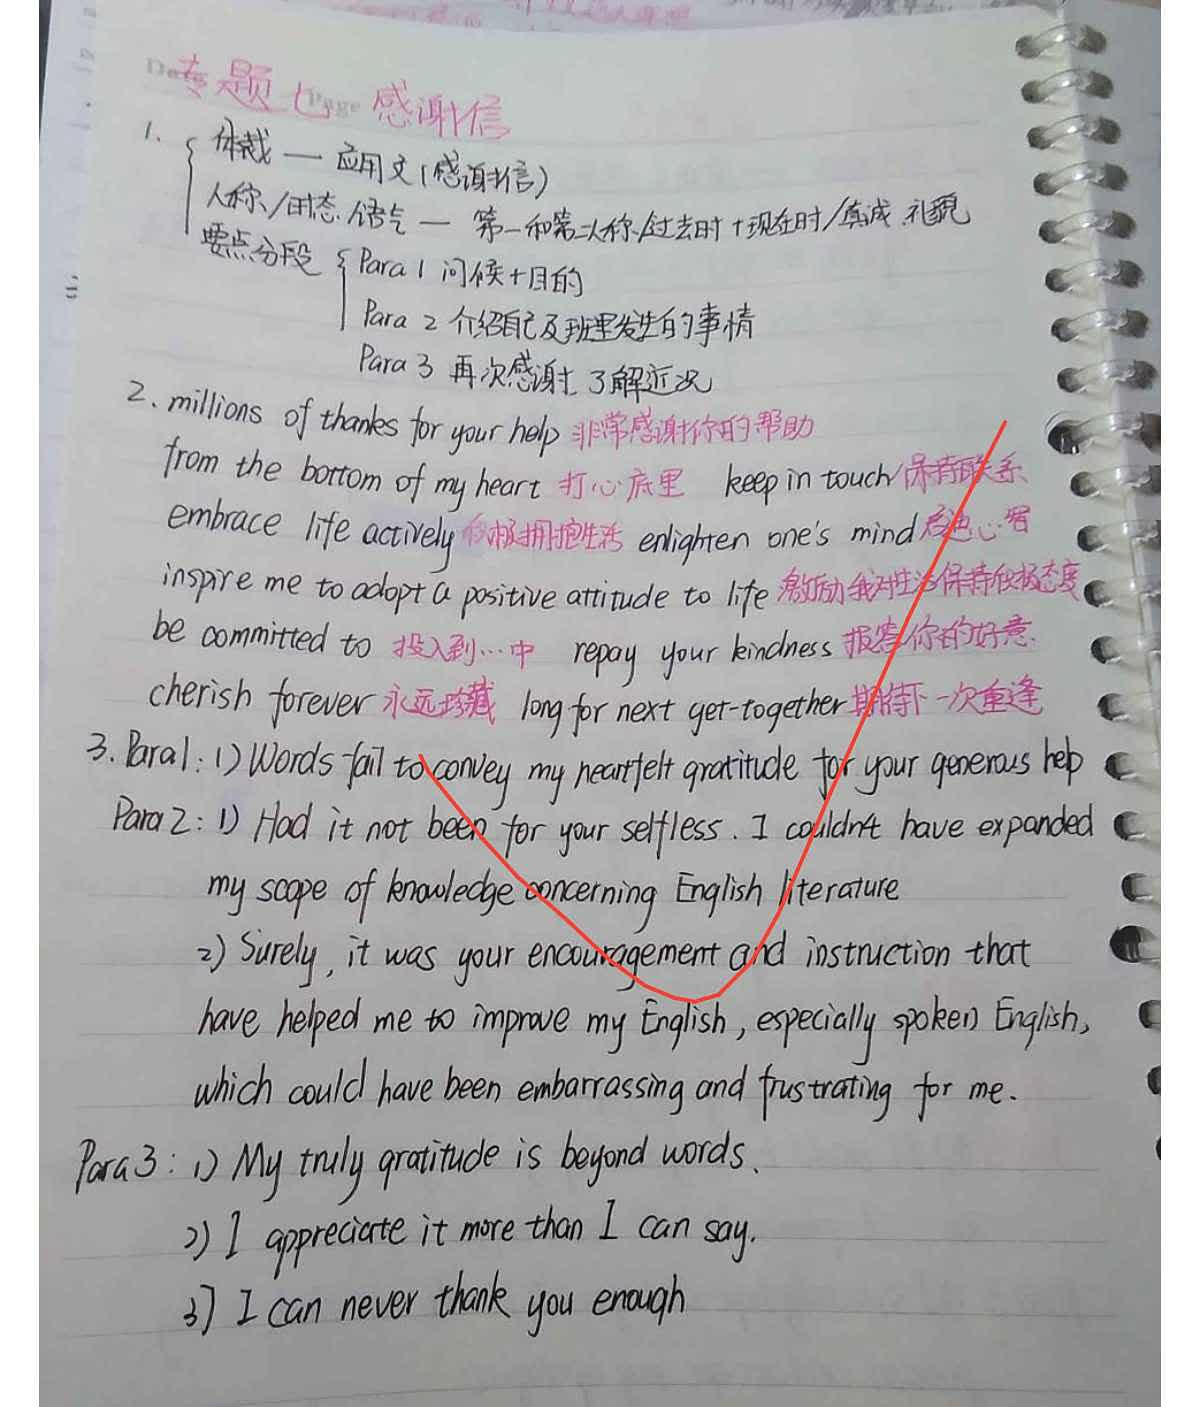 专题七 感谢信
1. 体裁 — 应用文(感谢信)
人称/时态/语气 — 第一和第二人称/过去时+现在时/真诚 礼貌
要点分段 Para 1 问候+目的
Para 2 介绍自己及班里发生的事情
Para 3 再次感谢 了解近况
2. millions of thanks for your help 非常感谢你的帮助
from the bottom of my heart 打心底里 keep in touch 保持联系
embrace life actively 积极拥抱生活 enlighten one's mind 启迪心智
inspire me to adopt a positive attitude to life 激励我对生活保持积极态度
be committed to 投入到…中 repay your kindness 报答你的好意.
cherish forever 永远珍藏 long for next get-together 期待下一次重逢
3. Para1: 1) Words fail to convey my heartfelt gratitude for your generous help
Para2: 1) Had it not been for your selfless. I couldn't have expanded
my scope of knowledge concerning English literature
2) Surely, it was your encouragement and instruction that
have helped me to improve my English, especially spoken English,
which could have been embarrassing and frustrating for me.
Para3: 1) My truly gratitude is beyond words.
2) I appreciate it more than I can say.
3) I can never thank you enough